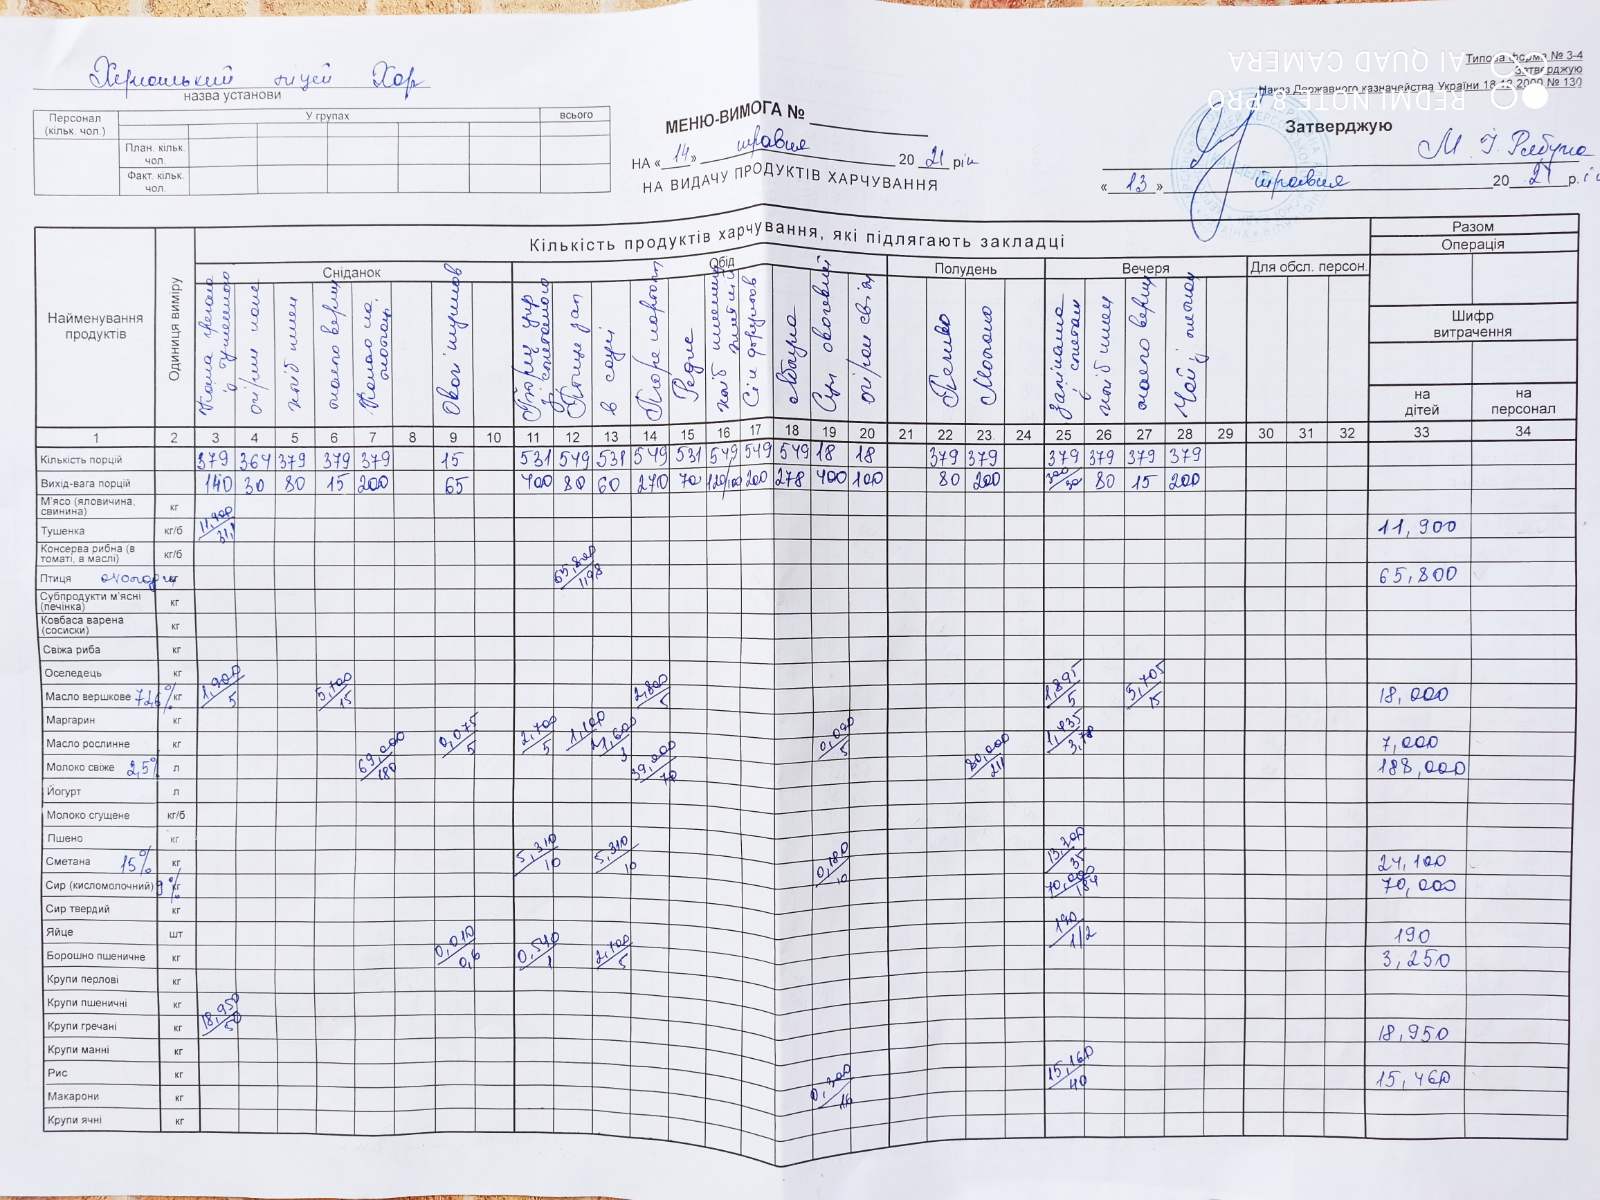 Типова форма № 3-4
Затверджую
Наказ Державного казначейства України 18.12.2000 № 130
AI QUAD CAMERA
REDMI NOTE 8 PRO
ліцей Хор
назва установи
Персонал (кільк. чол.)
У групах
всього
План. кільк. чол.
Факт. кільк. чол.
МЕНЮ-ВИМОГА №
НА « 14 » травня 20 21 рік
НА ВИДАЧУ ПРОДУКТІВ ХАРЧУВАННЯ
Затверджую
М. І.
« 13 » травня 20 21 р.
Найменування продуктів
Одиниця виміру
Кількість продуктів харчування, які підлягають закладці
Разом
Операція
Сніданок
Обід
Полудень
Вечеря
Для обсл. персон.
Шифр витрачення
на дітей
на персонал
хліб пшен
масло верш
Какао на
Птиця зап
в соусі
Пюре картоп
Редис
Сік
Яблука
Суп овочевий
огірки свіж
Печиво
Молоко
Запіканка з сметан
хліб пшен
масло верш
Чай з лимон
1 2 3 4 5 6 7 8 9 10 11 12 13 14 15 16 17 18 19 20 21 22 23 24 25 26 27 28 29 30 31 32 33 34
Кількість порцій 379 364 379 379 379 15 531 549 531 549 531 549 549 549 18 18 379 379 379 379 379 379
Вихід-вага порцій 140 30 80 15 200 65 400 80 60 270 70 120/100 200 278 400 100 80 200 300/30 80 15 200
М'ясо (яловичина, свинина) кг
Тушенка кг/б 11,900/31,1 11,900
Консерва рибна (в томаті, в маслі) кг/б
Птиця кг 65,800/119,8 65,800
Субпродукти м'ясні (печінка) кг
Ковбаса варена (сосиски) кг
Свіжа риба кг
Оселедець кг
Масло вершкове 72,6% кг 1,900/5 5,700/15 2,800/5 1,895/5 5,705/15 18,000
Маргарин кг
Масло рослинне кг 0,075/5 2,700/5 1,100 1,600/3 0,090/5 1,435/3,78 7,000
Молоко свіже 2,5% л 69,000/180 39,000/70 80,000/211 188,000
Йогурт л
Молоко сгущене кг/б
Пшено кг
Сметана 15% кг 5,310/10 5,310/10 0,180/10 13,300/35 24,100
Сир (кисломолочний) 9% кг 70,000/184 70,000
Сир твердий кг
Яйце шт 190/1/2 190
Борошно пшеничне кг 0,010/0,6 0,540/1 2,700/5 3,250
Крупи перлові кг
Крупи пшеничні кг
Крупи гречані кг 18,950/50 18,950
Крупи манні кг
Рис кг 0,300/16 15,160/40 15,460
Макарони кг
Крупи ячні кг